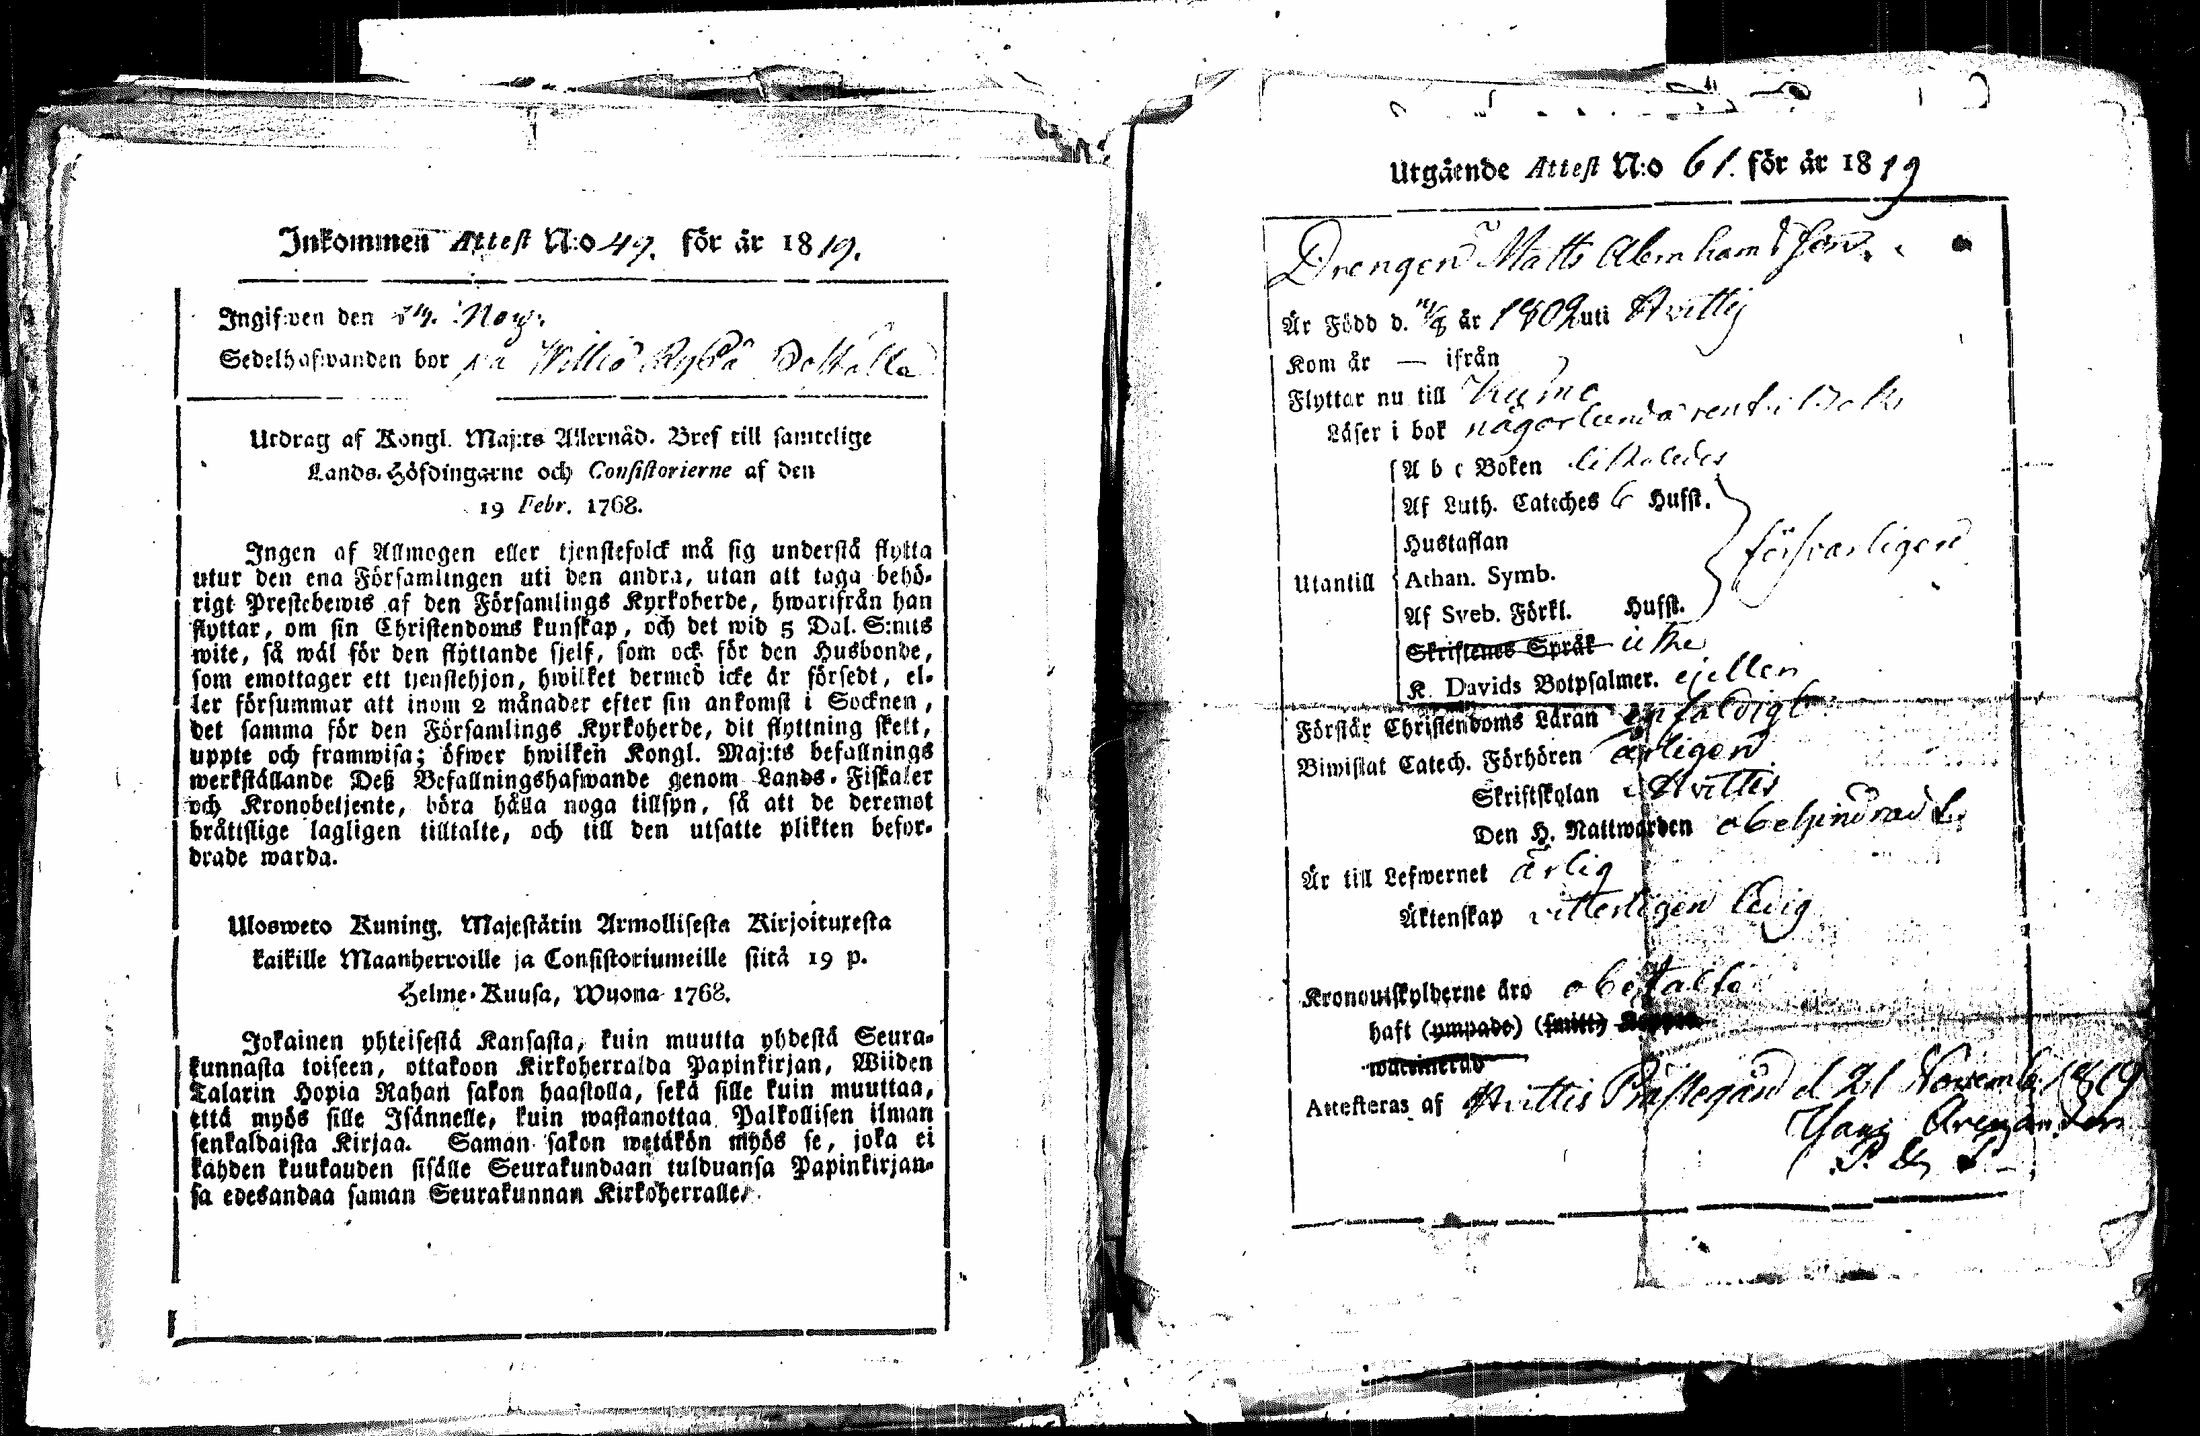 Inkommen Attest N:o 49. för år 1819.
Ingifwen den 24. Nov.
Sedelhafwanden bor på
Utdrag af Kongl. Maj:ts Allernåd. Bref till samtelige
Lands-Höfdingarne och Consistorierne af den
19 Febr. 1768.
Ingen af Allmogen eller tjenstefolck må sig understå flytta
utur den ena Församlingen uti den andra, utan att taga behö-
rigt Prestebewis af den Församlings Kyrkoherde, hwarifrån han
flyttar, om sin Christendoms kunskap, och det wid 5 Dal. S:mts
wite, så wäl för den flyttande sjelf, som ock för den Husbonde,
som emottager ett tjenstehjon, hwilket dermed icke är försedt, el-
ler försummar att inom 2 månader efter sin ankomst i Socknen,
det samma för den Församlings Kyrkoherde, dit flyttning skett,
uppte och framwisa; öfwer hwilken Kongl. Maj:ts befallnings
werkställande Deß Befallningshafwande genom Lands-Fiskaler
och Kronobetjente, böra hålla noga tillsyn, så att de deremot
bråttslige lagligen tilltalte, och till den utsatte plikten befor-
drade warda.
Ulosweto Kuning. Majestätin Armollisesta Kirjoituxesta
kaikille Maanherroille ja Consistoriumeille siitä 19 p.
Helme-Kuusa, Wuona 1768.
Jokainen yhteisestä Kansasta, kuin muutta yhdestä Seura-
kunnasta toiseen, ottakoon Kirkoherralda Papinkirjan, Wiiden
Talarin Hopia Rahan sakon haastolla, sekä sille kuin muuttaa,
että myös sille Isännelle, kuin wastanottaa Palkollisen ilman
senkaldaista Kirjaa. Saman sakon wetäkön myös se, joka ei
kahden kuukauden sisälle Seurakundaan tulduansa Papinkirjan-
sa edesandaa saman Seurakunnan Kirkoherralle.
Utgående Attest N:o 61. för år 1819
Drengen Matts Abrahamsson.
Är Född d. år 1802 uti Hvittis
Kom år — ifrån
Flyttar nu till Kumo
Läser i bok någorlunda rent i Bok
A b c Boken likaledes
Af Luth. Cateches 6 Hufst.
Hustaflan
Utantill Athan. Symb. försvarligen
Af Sveb. Förkl. Hufst.
Skriftenes Språk icke
K. Davids Botpsalmer. ejeller
Förstår Christendoms Läran enfaldigt
Biwistat Catech. Förhören årligen
Skriftskolan i Hvittis
Den H. Nattwarden obehindrad
Är till Lefwernet ärlig
Äktenskap vitterligen ledig
Kronoutskylderne äro obetalte
haft (ympade) (smitt) Koppor
waccinerad
Attesteras af Hvittis Prästegård d 21 Novemb. 1819